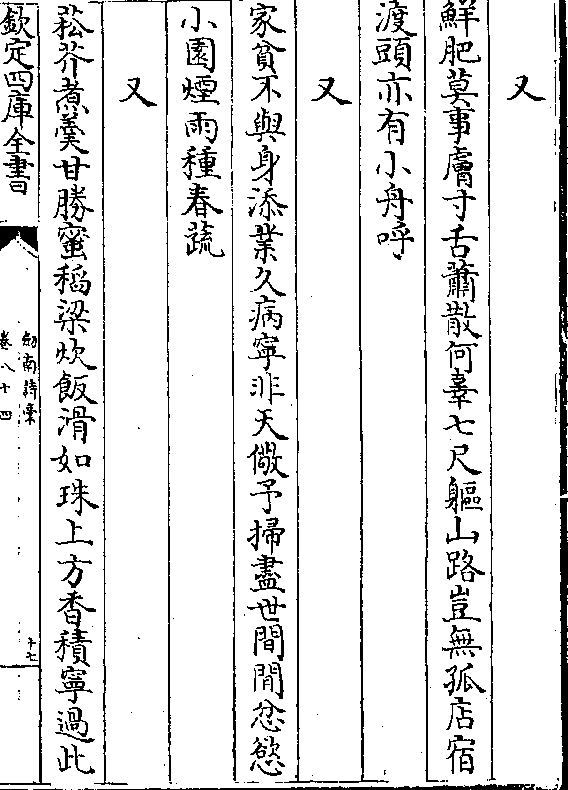 又
鮮肥莫事膚寸舌蕭散何辜七尺軀山路豈無孤店宿
渡頭亦有小舟呼
又
家貧不與身添業久病寧非天儆予掃盡世間閒忿慾
小園煙雨種春蔬
又
菘芥煮羮甘勝蜜稻梁炊飯滑如珠上方香積寧過此
欽定四庫全書
劒南詩稾
卷八十四
十七